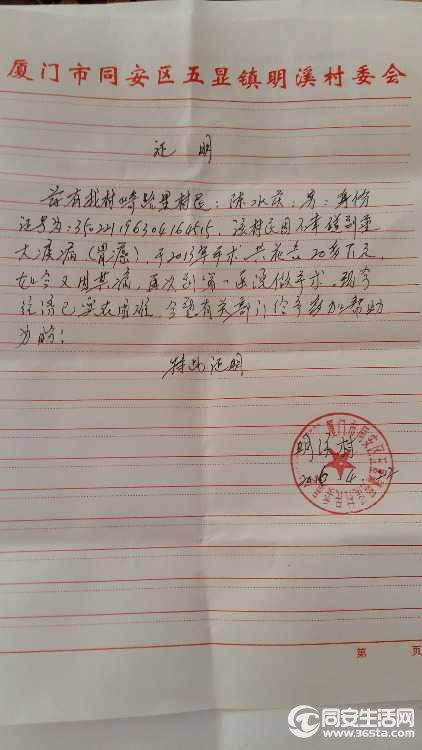 厦门市同安区五显镇明溪村委会
证明
兹有我村崎路里村民:陈水庆:男:身份
证号为:350221196304164515,该村民因不幸碰到重
大疾病(胃癌),于2013年手术共花去20多万元,
如今又因其病,再次到第一医院做手术,现今
经济已实在困难,今望有关部门给予多加帮助
为盼:
特此证明
明溪村
2016.4.
第 页
同安生活网
www.365ta.com